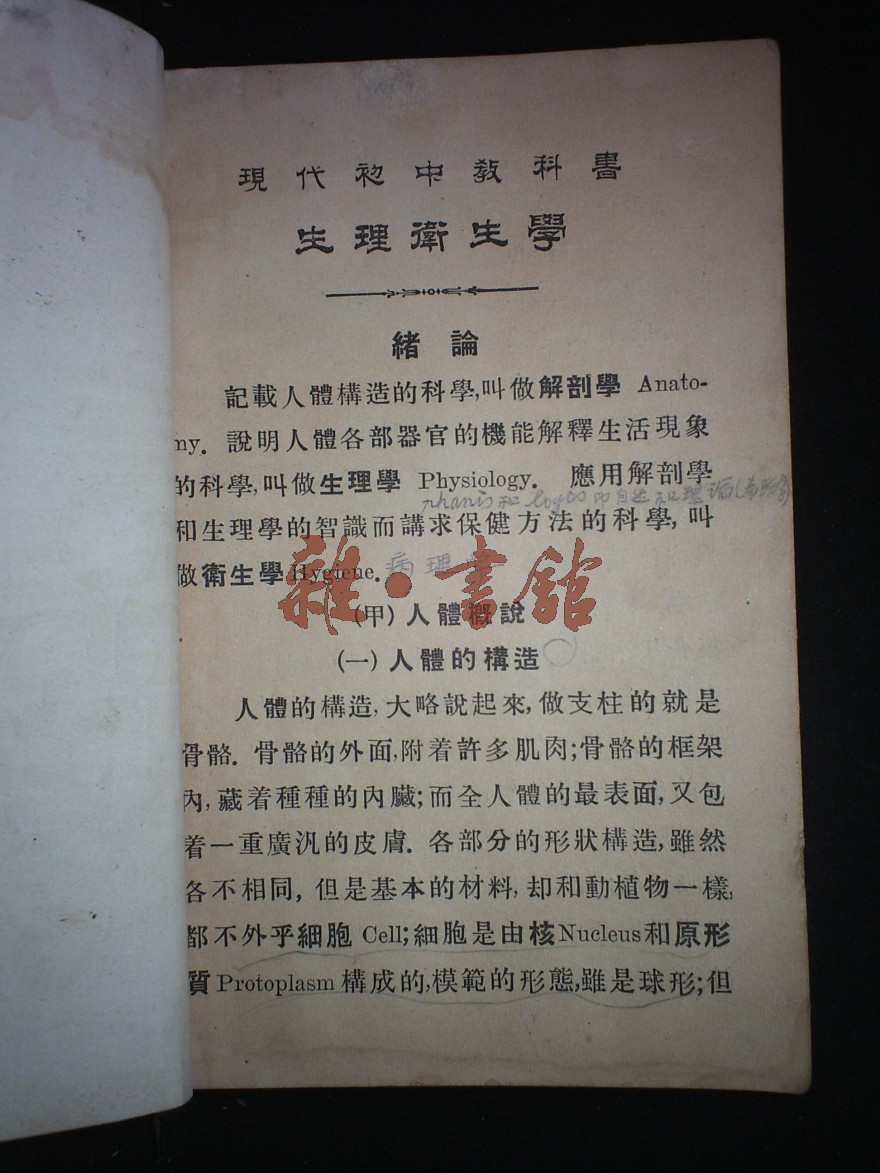 現代初中教科書
生理衛生學
緒論
記載人體構造的科學,叫做解剖學 Anato-
my. 說明人體各部器官的機能解釋生活現象
的科學,叫做生理學 Physiology. 應用解剖學
和 logos 即自然和理
和生理學的智識而講求保健方法的科學,叫
做衛生學 Hygiene. 病理學
雜·書館
(甲) 人體概說
(一) 人體的構造
人體的構造,大略說起來,做支柱的就是
骨骼. 骨骼的外面,附着許多肌肉;骨骼的框架
內,藏着種種的內臟;而全人體的最表面,又包
着一重廣汎的皮膚. 各部分的形狀構造,雖然
各不相同,但是基本的材料,却和動植物一樣,
都不外乎細胞 Cell;細胞是由核 Nucleus 和原形
質 Protoplasm 構成的,模範的形態,雖是球形;但